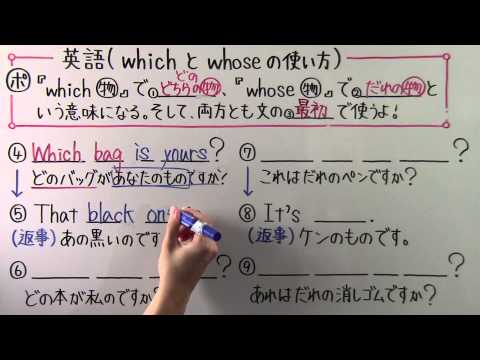 英語(whichとwhoseの使い方)
ポ『which物』で①どちらの物、『whose物』で②だれの物と
どの
いう意味になる。そして、両方とも文の③最初で使うよ！
④ Which bag is yours?
どのバッグがあなたのものですか？
⑤ That black on
(返事) あの黒いのです
⑥ ?
どの本が私のですか？
⑦ ?
これはだれのペンですか？
⑧ It's .
(返事) ケンのものです。
⑨ ?
あれはだれの消しゴムですか？